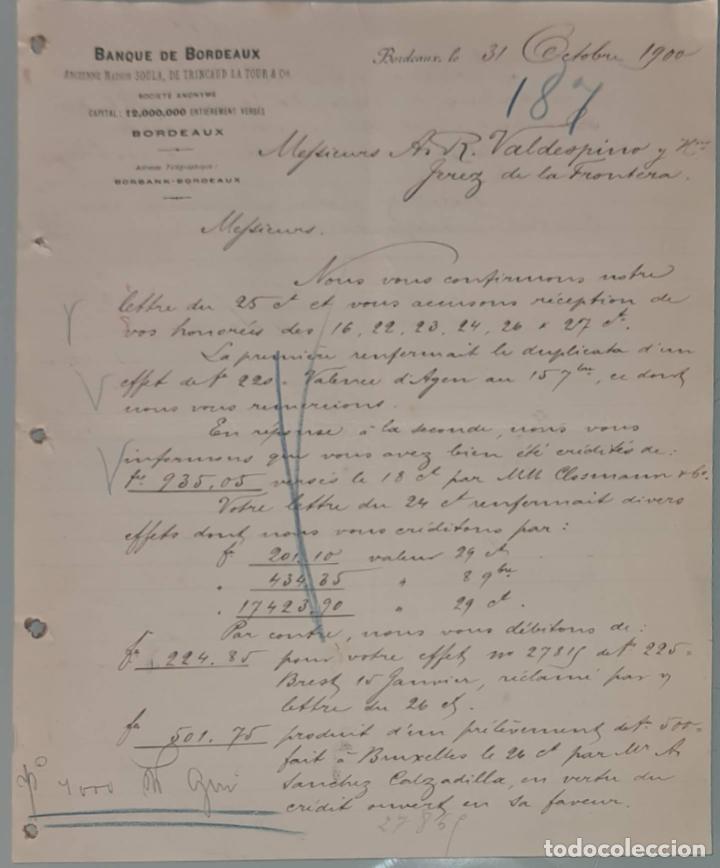 BANQUE DE BORDEAUX
ANCIENNE MAISON SOULA, DE TRINCAUD LA TOUR & Cie
SOCIÉTÉ ANONYME
CAPITAL: 12,000,000 ENTIÈREMENT VERSÉS
BORDEAUX
Adresse Télégraphique:
BORBANK-BORDEAUX
Bordeaux, le 31 Octobre 1900
187
Messieurs A. R. Valdespino y Hno
Jerez de la Frontera.
Messieurs.
Nous vous confirmons notre
lettre du 25 ct et vous accusons réception de
vos honorées des 16, 22, 23, 24, 26 & 27 ct.
La première renfermait le duplicata d'un
effet de fr 220. Valence d'Agen au 15 7bre, ce dont
nous vous remercions.
En réponse à la seconde, nous vous
informons que vous avez bien été crédités de:
frs 935,05 versés le 18 ct par MM Closmann & Ce.
Votre lettre du 24 ct renfermait divers
effets dont nous vous créditons par:
fr 201.10 valeur 29 ct
" 434.35 " 8 9bre
" 17423.90 " 29 ct.
Par contre, nous vous débitons de:
fr 224.85 pour votre effet no 27815 de fr 225=
Brest 15 Janvier, réclamé par
lettre du 26 ct.
fr 501.75 produit d'un prélèvement de fr 500=
fait à Bruxelles le 26 ct par Mr A.
Sanchez Calzadilla, en vertu du
crédit ouvert en sa faveur.
todocoleccion